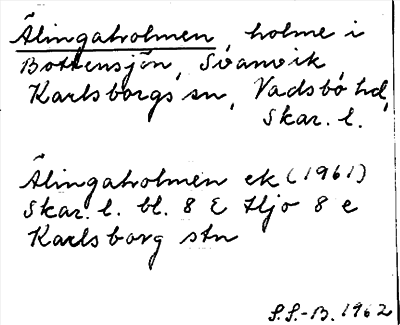 Älingaholmen, holme i
Bottensjön, Svanvik
Karlsborgs sn, Vadsbo hd,
Skar. l.
Älingaholmen ek (1961)
Skar. l. bl. 8 E Hjo 8 e
Karlsborg stn
S.S.-B. 1962